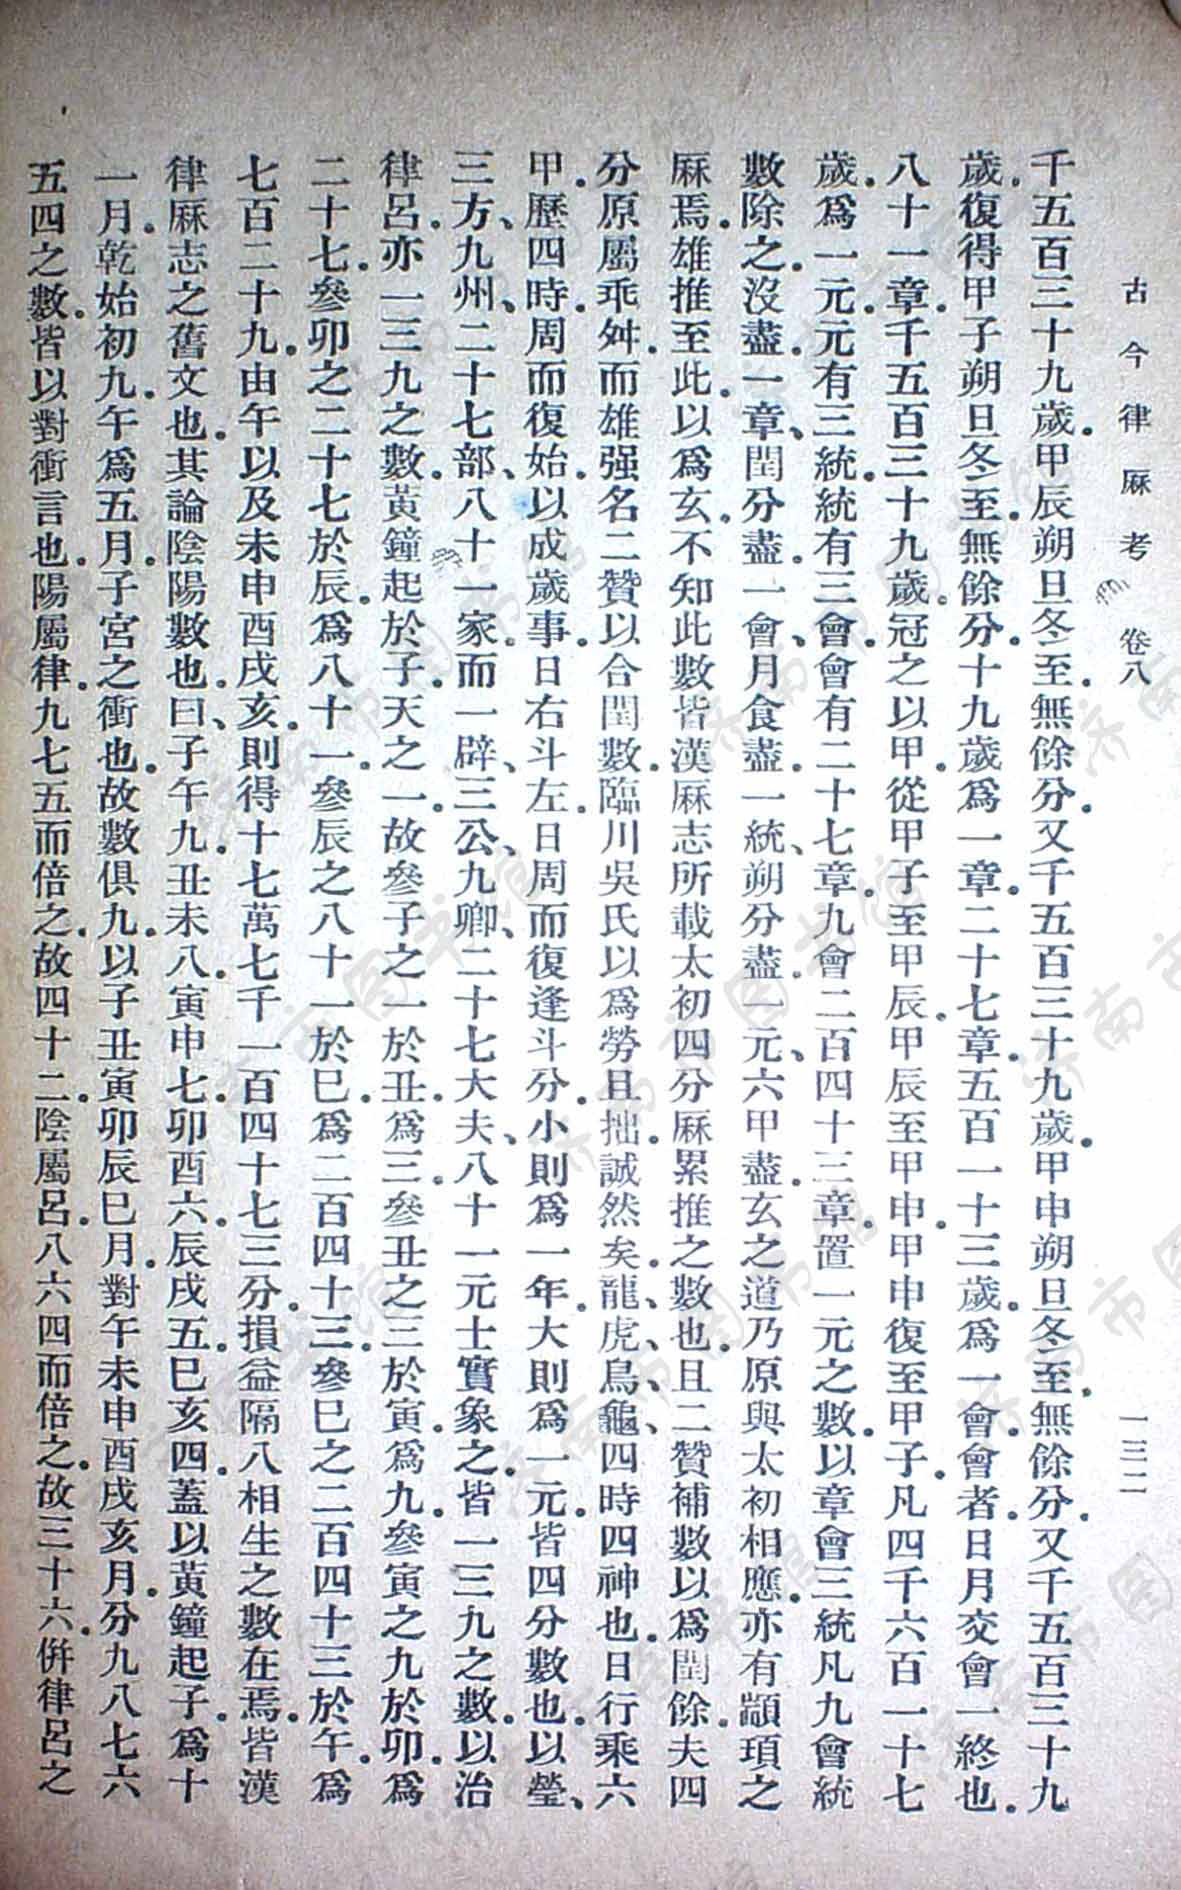 古今律厤考 卷八 一三二
千五百三十九歲。甲辰朔旦冬至。無餘分。又千五百三十九歲。甲申朔旦冬至。無餘分。又千五百三十九
歲。復得甲子朔旦冬至。無餘分。十九歲爲一章。二十七章。五百一十三歲。爲一會。會者。日月交會一終也。
八十一章。千五百三十九歲。冠之以甲。從甲子至甲辰。甲辰至甲申。甲申復至甲子。凡四千六百一十七
歲。爲一元。元有三統。統有三會。會有二十七章。九會二百四十三章。置一元之數。以章會三統。凡九會統
數除之。沒盡。一章、閏分盡。一會、月食盡。一統、朔分盡。一元、六甲盡。玄之道乃原與太初相應。亦有顓頊之
厤焉。雄推至此。以爲玄。不知此數皆漢厤志所載太初四分厤累推之數也。且二贊補數以爲閏餘。夫四
分原屬乖舛。而雄强名二贊以合閏數。臨川吳氏以爲勞且拙。誠然矣。龍、虎、鳥、龜。四時四神也。日行乘六
甲。歷四時。周而復始。以成歲事。日右斗左。日周而復逢斗分。小則爲一年。大則爲一元。皆四分數也。以瑩、
三方、九州、二十七部、八十一家。而一辟、三公、九卿、二十七大夫、八十一元士實象之。皆一三九之數。以治
律呂。亦一三九之數。黃鐘起於子。天之一。故參子之一於丑。爲三。參丑之三於寅。爲九。參寅之九於卯。爲
二十七。參卯之二十七於辰。爲八十一。參辰之八十一於巳。爲二百四十三。參巳之二百四十三於午。爲
七百二十九。由午以及未申酉戌亥。則得十七萬七千一百四十七。三分損益隔八相生之數在焉。皆漢
律厤志之舊文也。其論陰陽數也。曰、子午九。丑未八。寅申七。卯酉六。辰戌五。巳亥四。蓋以黃鐘起子。爲十
一月。乾始初九。午爲五月。子宮之衝也。故數俱九。以子丑寅卯辰巳月。對午未申酉戌亥月。分九八七六
五四之數。皆以對衝言也。陽屬律。九七五而倍之。故四十二。陰屬呂。八六四而倍之。故三十六。倂律呂之